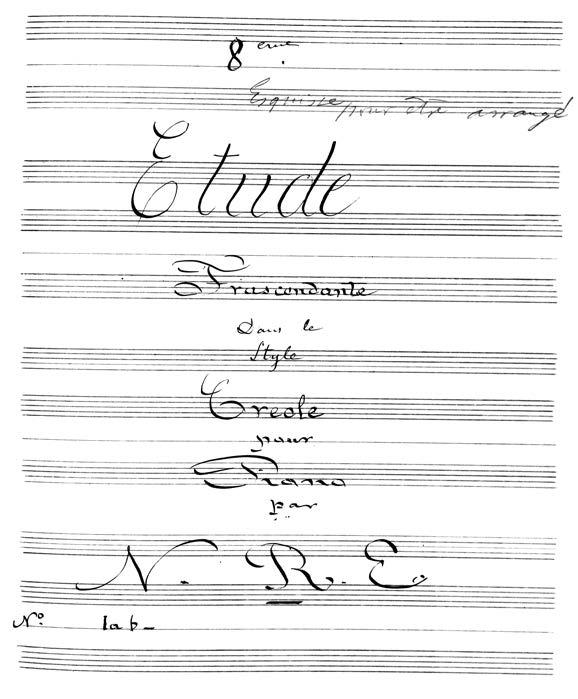 8eme
Esquisse pour être arrangé
Etude
Trascendante
Dans le
Style
Creole
pour
Piano
par
N. R. E.
No lab-